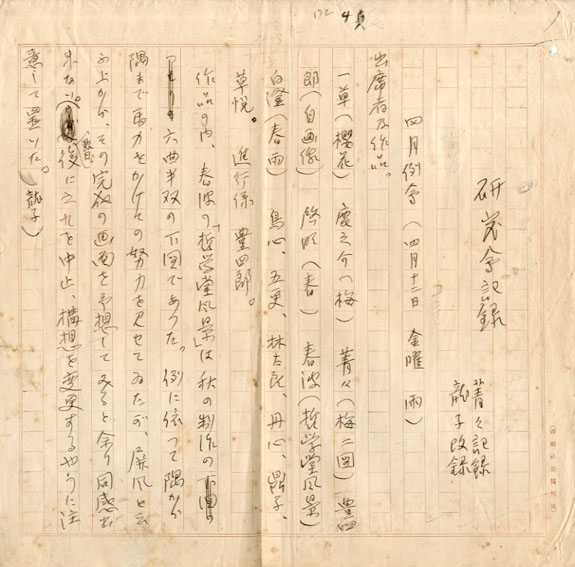 4頁
研究会記録
菁々記録
龍子改録
四月例会(四月十二日 金曜 雨)
出席者及作品。
一草(櫻花) 慶之介(梅) 菁々(梅二図) 豊四
郎(自画像) 啓明(春) 春波(哲学堂風景)
白澄(春雨) 鳥心、五更、林太郎、丹心、鼎子、
草悦。 進行係 豊四郎。
作品の内、春波の「哲学堂風景」は秋の制作の
六曲半双の下図であつた。例に依つて隅から
隅まで馬力をかけての努力を見せてゐたが、屏風と云
ふ上から、その完成の画面を予想してみると余り同感出
来ない。後に之れを中止、構想を変更するやうに注
意して置いた。(龍子)